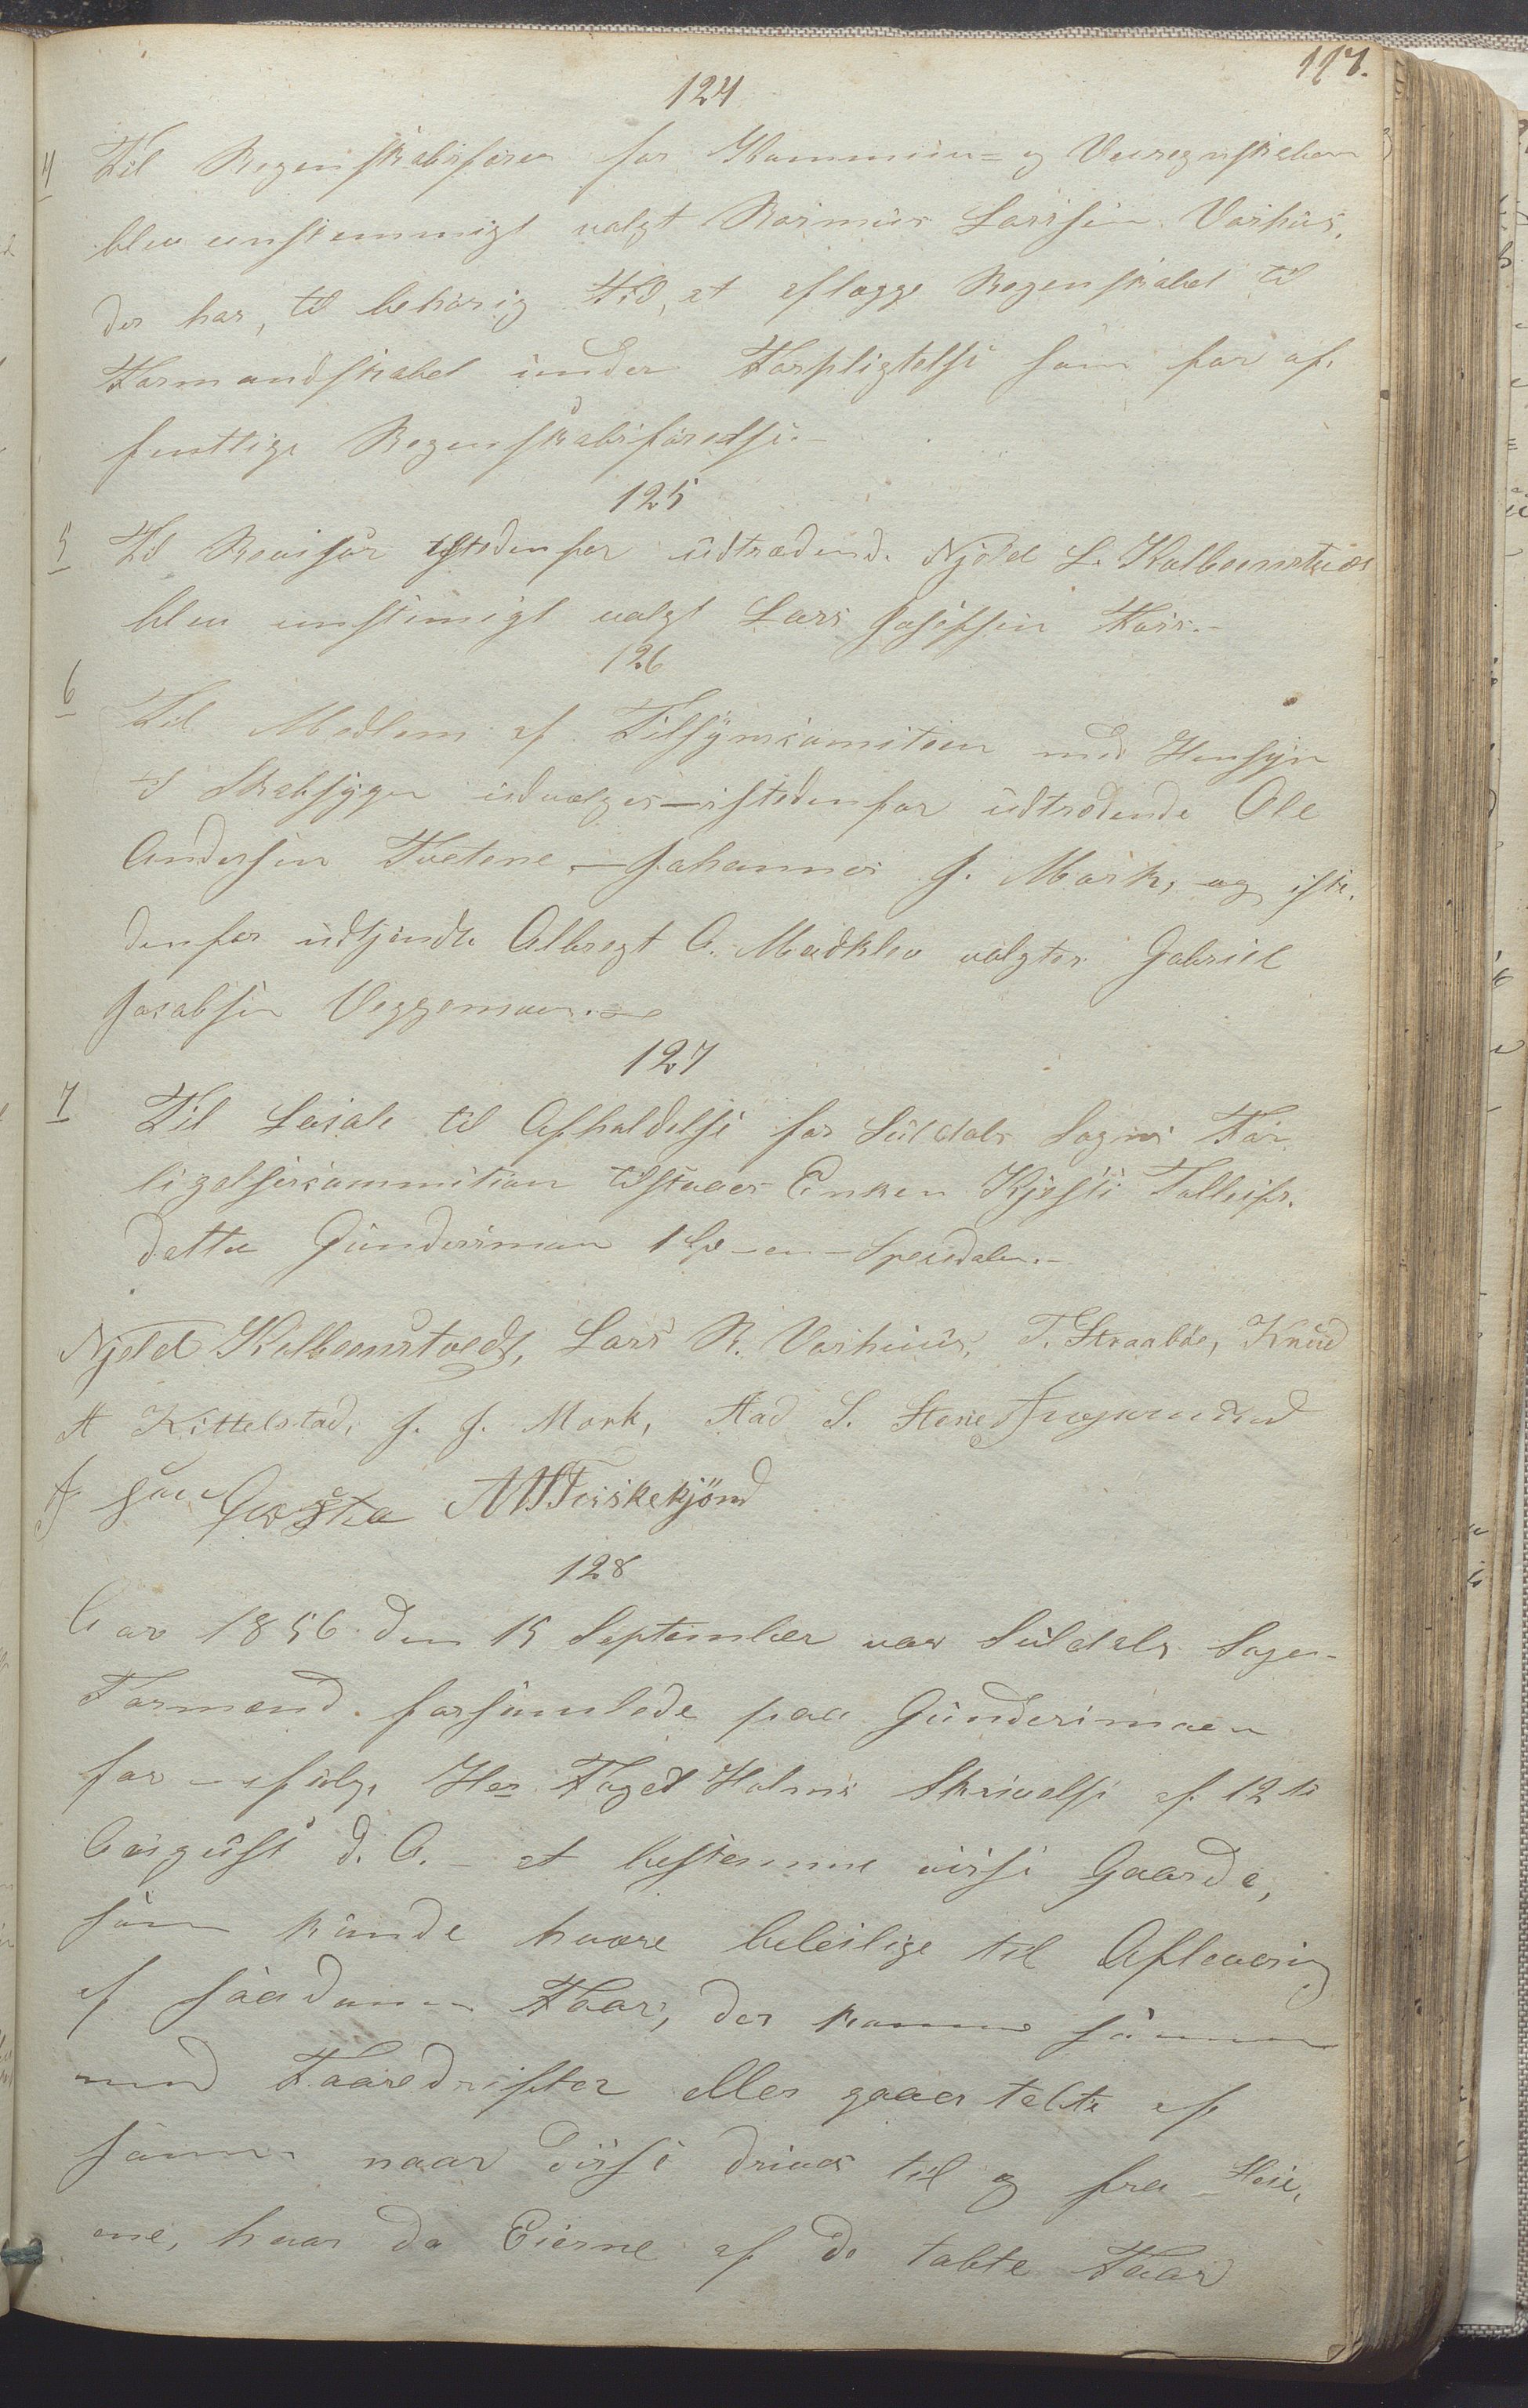 117.
124
4 Til Regenskabsfører for Kommun= og Veiregnskaben
blev enstemmigt valgt Rasmus Larssen Vashus,
der har, til behørig Tid, at aflægge Regenskabet til
Formandskabet under Forpligtelse som for of-
fentlige Regenskabsførelse.-
125
5 Til Revisor istedenfor udtrædend. Njeld L. Kolbeenstvedt
blev enstimigt valgt Lars Josefsen Foss.-
126
6 Til Medlem af Tilsynscomiteen med Hensyn
til Skabsygen udvælges - istedenfor udtrædende Ole
Andersen Tvetene - Johannes J. Mork, og iste-
denfor udtjendte Albregt A. Mæhlev valgtes Gabriel
Jacobsen Veggemoen.-
127
7 Til Locale til Afholdelse for Suldals Sogns For-
ligelsescommition tilstaaes Enken Kjesti Tolleifs-
datter Gundersmoen 1 Sp - en - Speciedaler.-
Njeld Kolbeenstvedt, Lars R. Vashuus, T. Straabøe, Knud
A Kittelstad, J. J. Mork, Aad S. Steine
128
Aar 1856 den 15 September var Suldals Sogns-
Formænd forsamlede paa Gundersmoen
for - ifølge Her Foged Holms Skrivelse af 12te
August d. A. - at bestemme visse Gaarde,
som kunde være beleilige til Aflevering
af saadanne Faar, der komme sammen
med Faaredrifter eller gaaer tabte af
samme naar disse drives til og fra Heie-
ne, hvor da Eierne af de tabte Faar